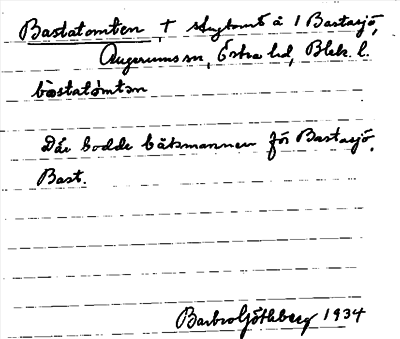 Bastatomten, † stugtomt å 1 Bastasjö,
Augerums sn, Östra hd, Blek. l.
bàstatómtən
Där bodde båtsmannen för Bastasjö.
Bast.
Barbro Göthberg 1934